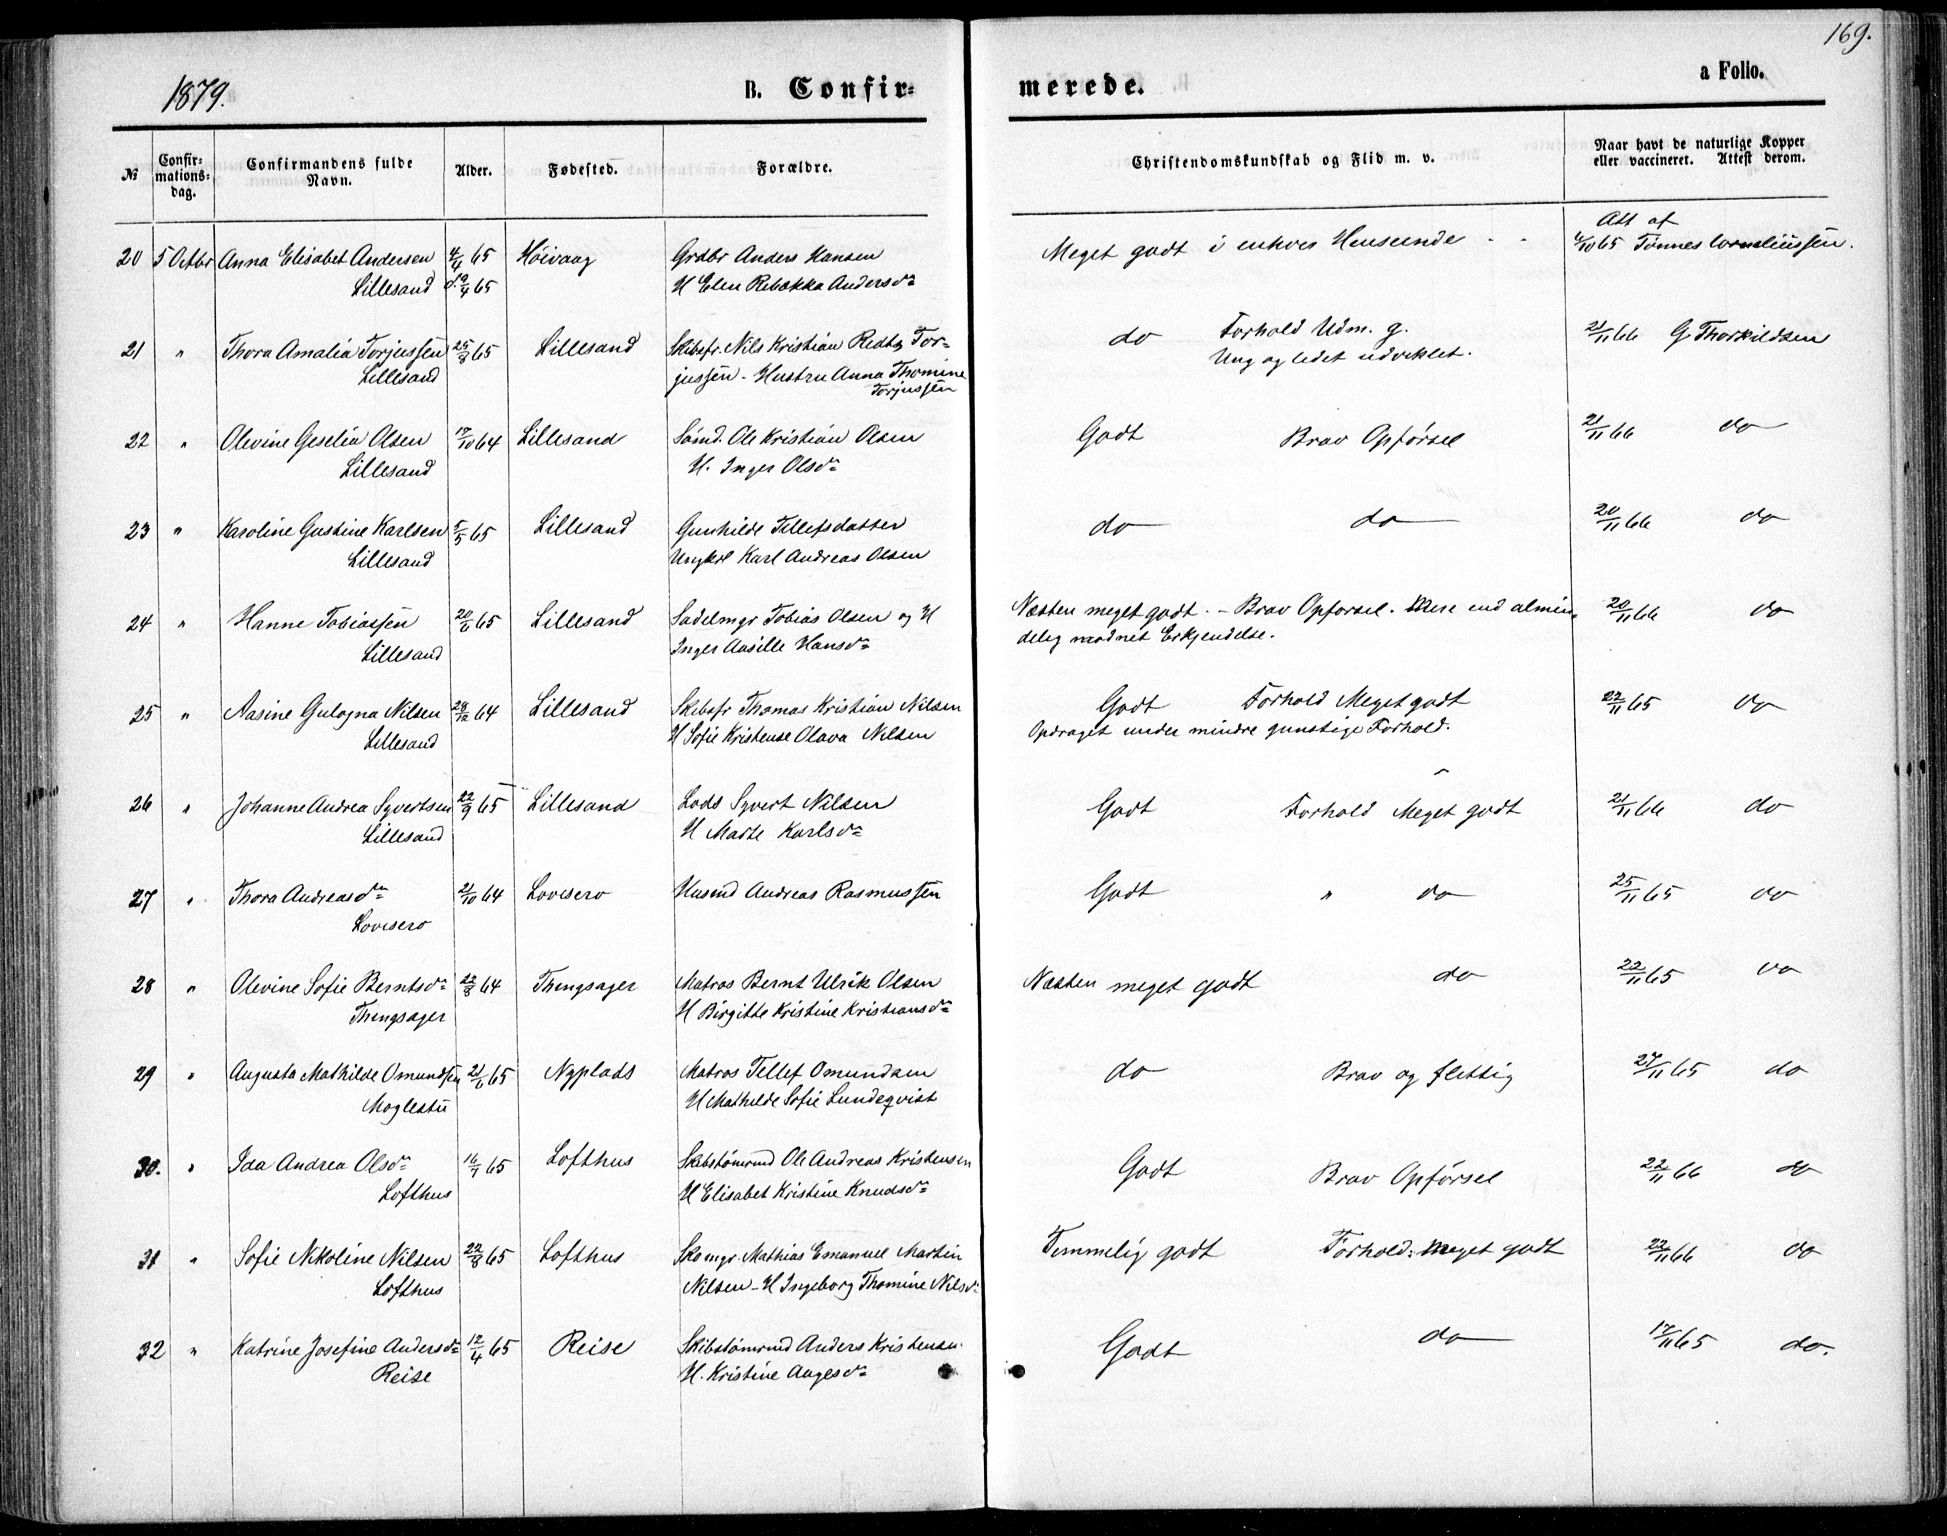 169.
1879.
B. Confir=
merede.
a Folio.
№
Confir-
mations-
dag.
Confirmandens fulde
Navn.
Alder.
Fødested.
Forældre.
Christendomskundskab og Flid m. v.
Naar havt de naturlige Kopper
eller vaccineret. Attest derom.
20 5 Octbr Anna Elisabet Andersen 4/4 65 Höivaag Grdbr Anders Hansen Meget godt i enhver Henseende 6/10 65 Att af Tönnes Corneliussen.
Lillesand d. 19/4 65 H Elen Rebekka Andersdr
21 " Thora Amalia Torjussen 25/8 65 Lillesand Skibsfr. Nils Kristian Redtz Tor- do Forhold Udm. g. 21/11 66 G Thorkildsen
Lillesand jussen - Hustru Anna Thomine Ung og ledet udviklet.
Torjussen
22 " Olevine Geselia Olsen 17/10 64 Lillesand Sömd. Ole Kristian Olsen Godt Brav Opførsel 21/11 66 do
Lillesand H. Inger Olsdr
23 " Karoline Gustine Karlsen 5/5 65 Lillesand Gunhilde Tellefsdatter do do 20/11 66 do
Lillesand Ungkrl Karl Andreas Olsen
24 " Hanne Tobiassen 20/6 65 Lillesand Sadelmgr Tobias Olsen og H Næsten meget godt. - Brav Opførsel. Mere end almin- 20/11 66 do
Lillesand Inger Aasille Hansdr delig modnet Erkjendelse.
25 " Aasine Gulogna Nilsen 28/12 64 Lillesand Skibsfr Thomas Kristian Nilsen Godt Forhold Meget godt 22/11 65 do
Lillesand H Sofie Kristense Olava Nilsen Opdraget under mindre gunstige Forhold.
26 " Johanne Andrea Syvertsen 22/9 65 Lillesand Lods Syvert Nilsen Godt Forhold Meget godt 21/11 66 do
Lillesand H Marte Karlsdr
27 " Thora Andreasdr 21/10 64 Lovisero Husmd Andreas Rasmussen Godt " do 25/11 65 do
Lovisero
28 " Olevine Sofie Berntsdr 22/8 64 Thingsager Matros Bernt Ulrik Olsen Næsten meget godt do 22/11 65 do
Thingsager H Birgitte Kristine Kristiansdr
29 " Augusta Mathilde Omundsen 21/6 65 Nyplads Matros Tellef Omundsen do Brav og flittig 27/11 65 do
Moglestu H Mathilde Sofie Lundeqvist
30. " Ida Andrea Olsdr 16/7 65 Lofthus Skibstömrmd Ole Andreas Kristensen Godt Brav Opførsel 22/11 66 do
Lofthus H Elisabet Kristine Knudsdr
31 " Sofie Nikoline Nilsen 22/8 65 Lofthus Skomgr. Mathias Emanuel Martin Temmelig godt Forhold: Meget godt 22/11 66 do
Lofthus Nilsen - H Ingeborg Thomine Nilsdr
32 " Katrine Josefine Andersdr 12/4 65 Reise Skibstömrmd Anders Kristensen Godt do 17/11 65 do.
Reise H. Kristine Aagesdr